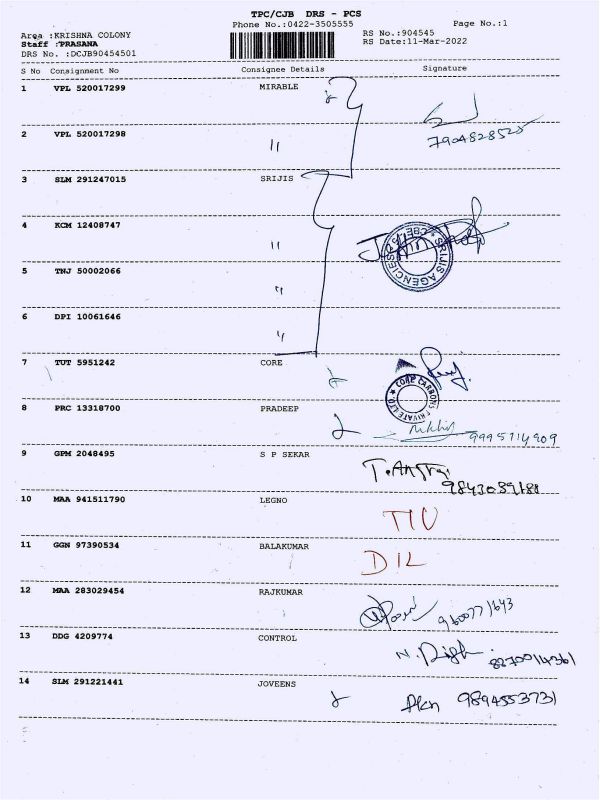 TPC/CJB DRS - PCS
Phone No.:0422-3505555
Page No.:1
Area :KRISHNA COLONY
RS No.:904545
Staff :PRASANA
RS Date:11-Mar-2022
DRS No. :DCJB90454501
S No Consignment No Consignee Details Signature
1 VPL 520017299 MIRABLE
2 VPL 520017298 "
7904828525
3 SLM 291247015 SRIJIS
4 KCM 12408747 "
SRIJIS AGENCIES CBE
5 TNJ 50002066 "
6 DPI 10061646 "
7 TUT 5951242 CORE
CORE CARBONS PRIVATE LTD.
8 PRC 13318700 PRADEEP
Nikhil 9995714909
9 GPM 2048495 S P SEKAR
9843039188
10 MAA 941511790 LEGNO
11 GGN 97390534 BALAKUMAR
DIL
12 MAA 283029454 RAJKUMAR
9600771643
13 DDG 4209774 CONTROL
8870014361
14 SLM 291221441 JOVEENS
9894553731